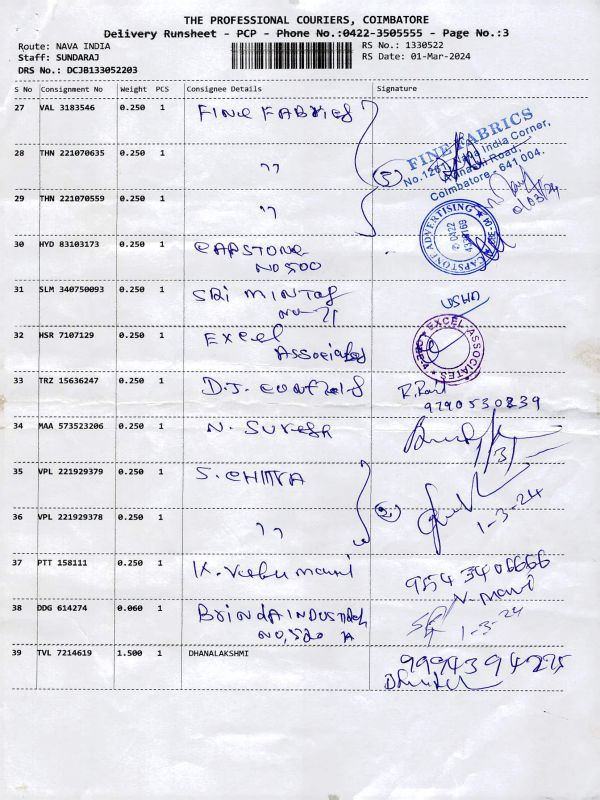 THE PROFESSIONAL COURIERS, COIMBATORE
Delivery Runsheet - PCP - Phone No.:0422-3505555 - Page No.:3
Route: NAVA INDIA
RS No.: 1330522
Staff: SUNDARAJ
RS Date: 01-Mar-2024
DRS No.: DCJB133052203
S No Consignment No Weight PCS Consignee Details Signature
27 VAL 3183546 0.250 1 FINE FABRICS
FINE FABRICS
Nava India Corner,
Road,
Coimbatore - 641 004.
28 THN 221070635 0.250 1 ,,
3
29 THN 221070559 0.250 1 ,,
01/03/24
30 HYD 83103173 0.250 1 CAPSTONE
NO 500
CAPSTONE ADVERTISING
0422
31 SLM 340750093 0.250 1 SRI MINTOS
NO-21
32 HSR 7107129 0.250 1 EXCEL
ASSOCIATES
EXCEL-ASSOCIATES
33 TRZ 15636247 0.250 1 D.J. CONTROLS
9290530839
34 MAA 573523206 0.250 1 N. SURESH
35 VPL 221929379 0.250 1 S. CHITRA
2
1-3-24
36 VPL 221929378 0.250 1 ,,
37 PTT 158111 0.250 1 K.
9543406666
V. mani
38 DDG 614274 0.060 1 BRINDA INDUSTRIES
NO, 520 A
1-3-24
39 TVL 7214619 1.500 1 DHANALAKSHMI
9994394225